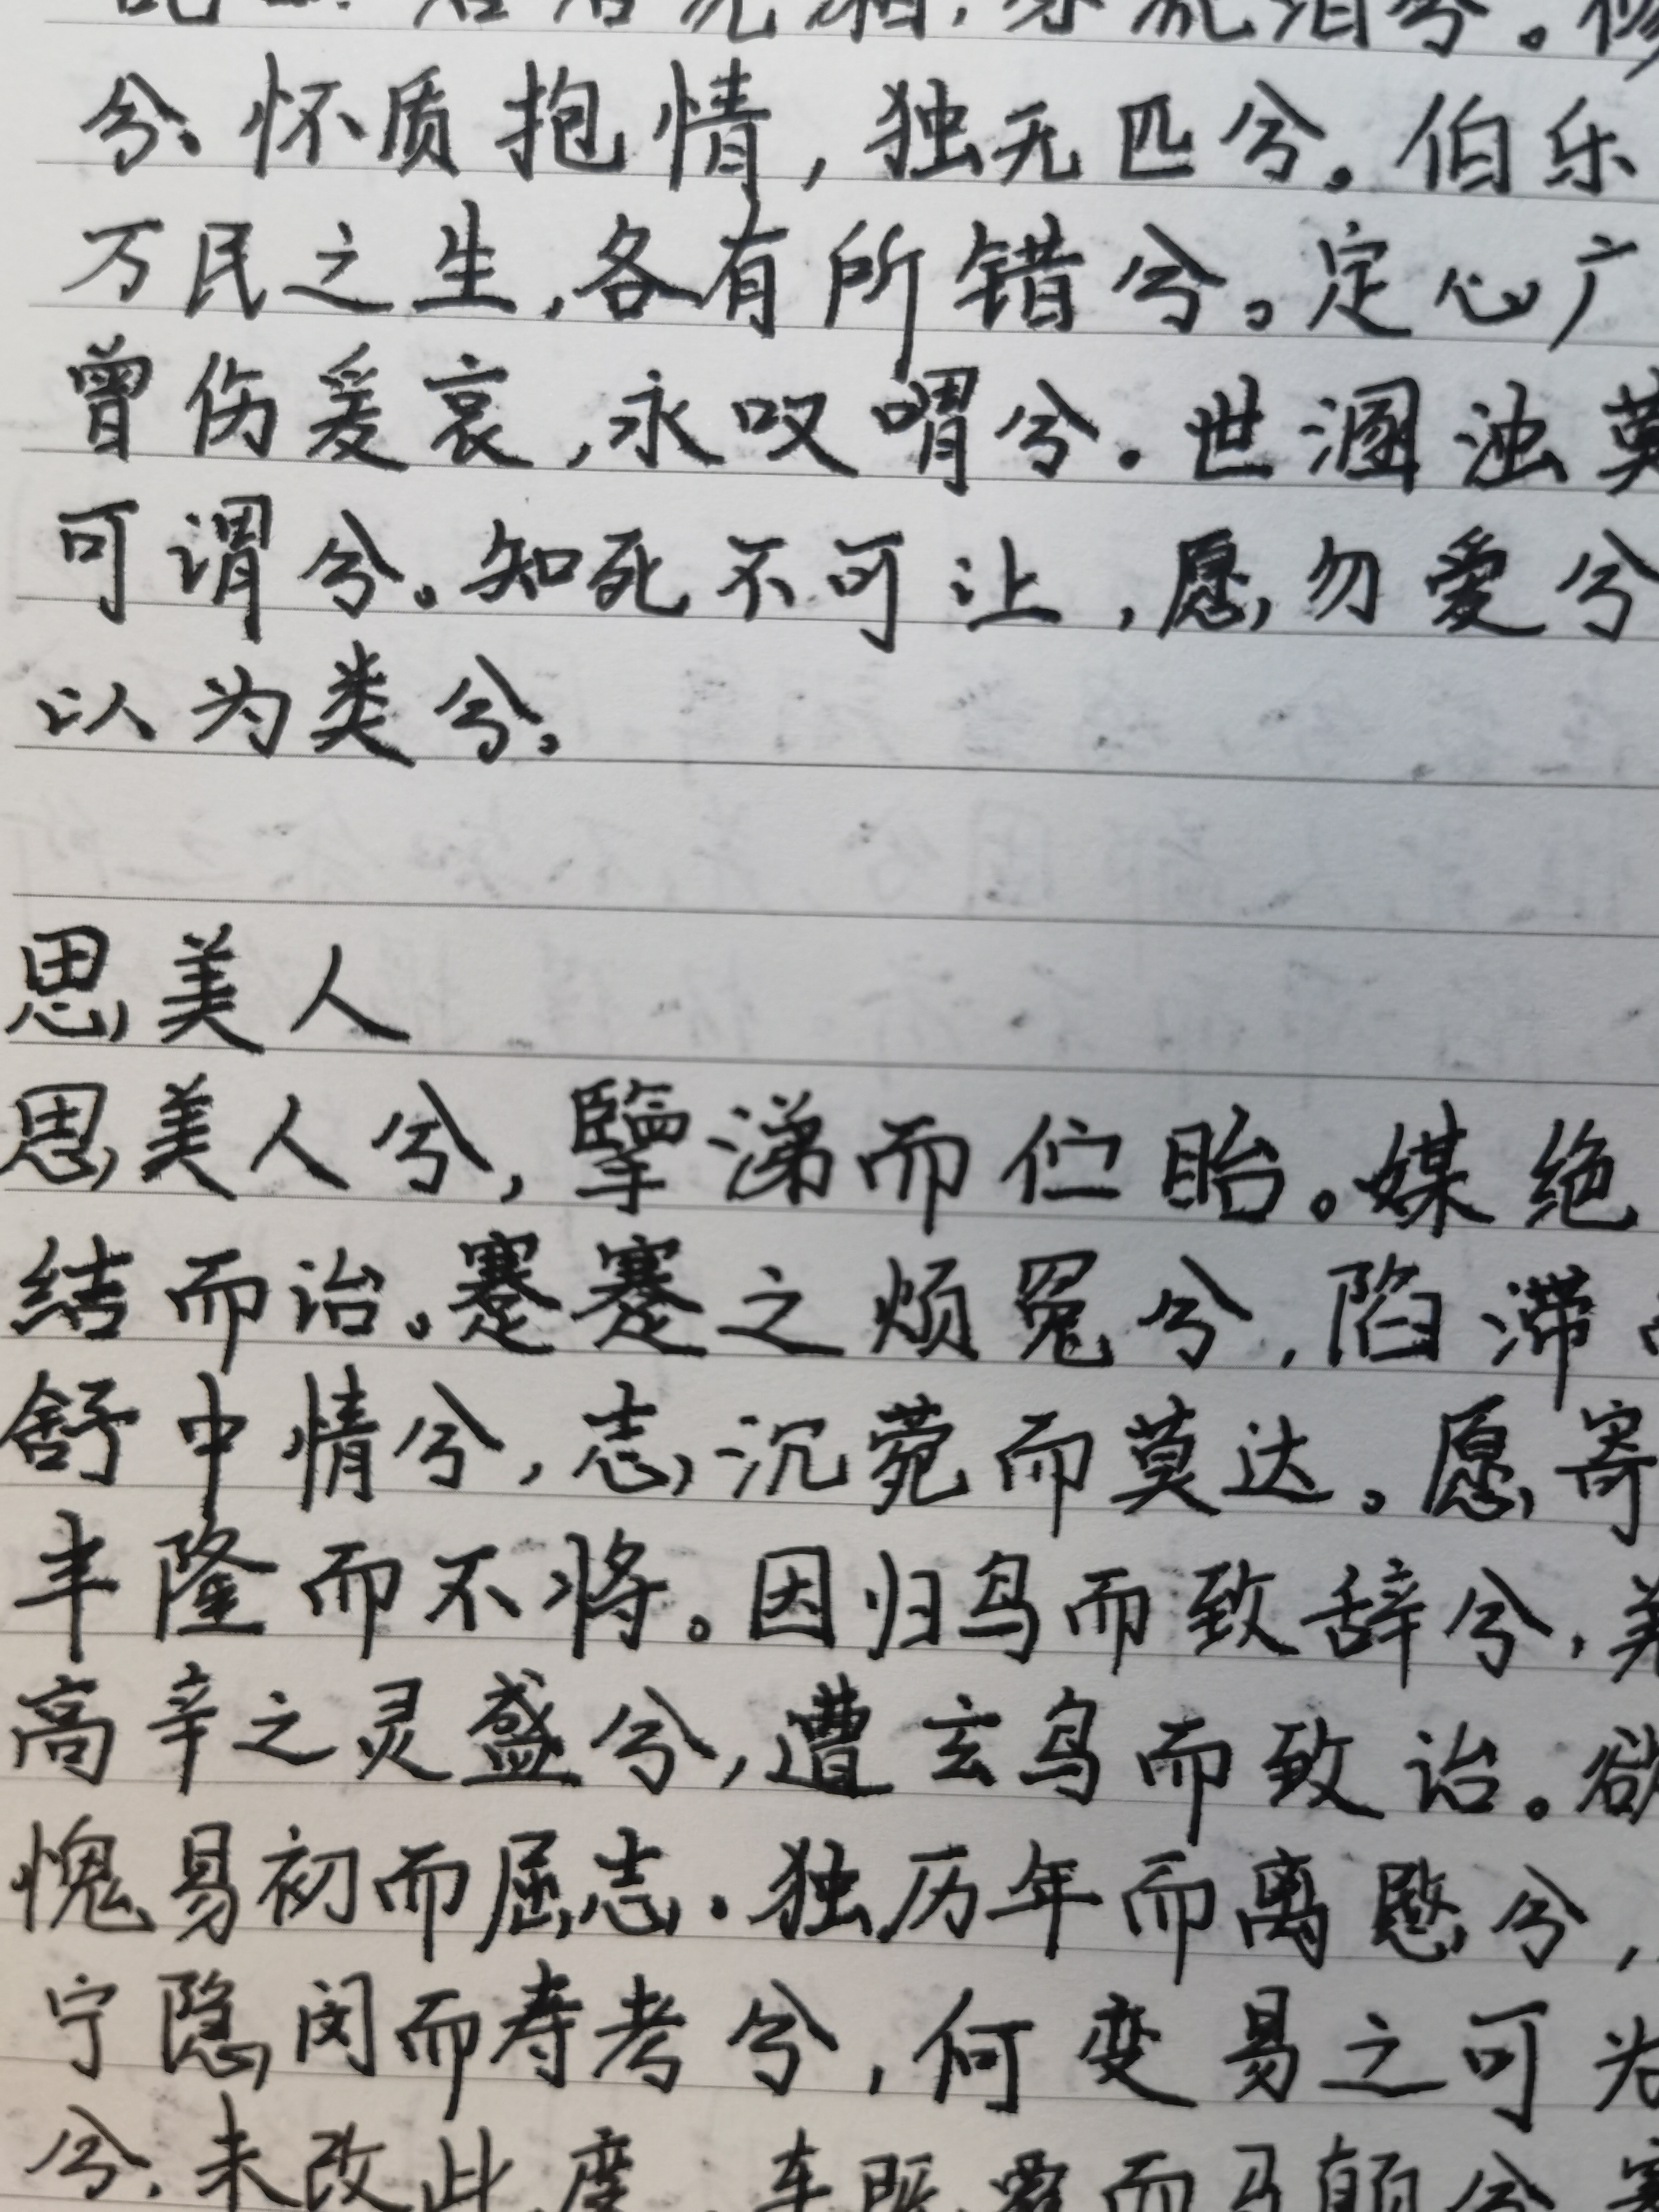 兮。怀质抱情，独无匹兮。伯乐
万民之生，各有所错兮。定心广
曾伤爰哀，永叹喟兮。世溷浊莫
可谓兮。知死不可让，愿勿爱兮
以为类兮。
思美人
思美人兮，擥涕而伫眙。媒绝
结而诒。蹇蹇之烦冤兮，陷滞
舒中情兮，志沉菀而莫达。愿寄
丰隆而不将。因归鸟而致辞兮，羌
高辛之灵盛兮，遭玄鸟而致诒。欲
愧易初而屈志。独历年而离愍兮，
宁隐闵而寿考兮，何变易之可为
兮。未改此度。车既覆而马颠兮，蹇